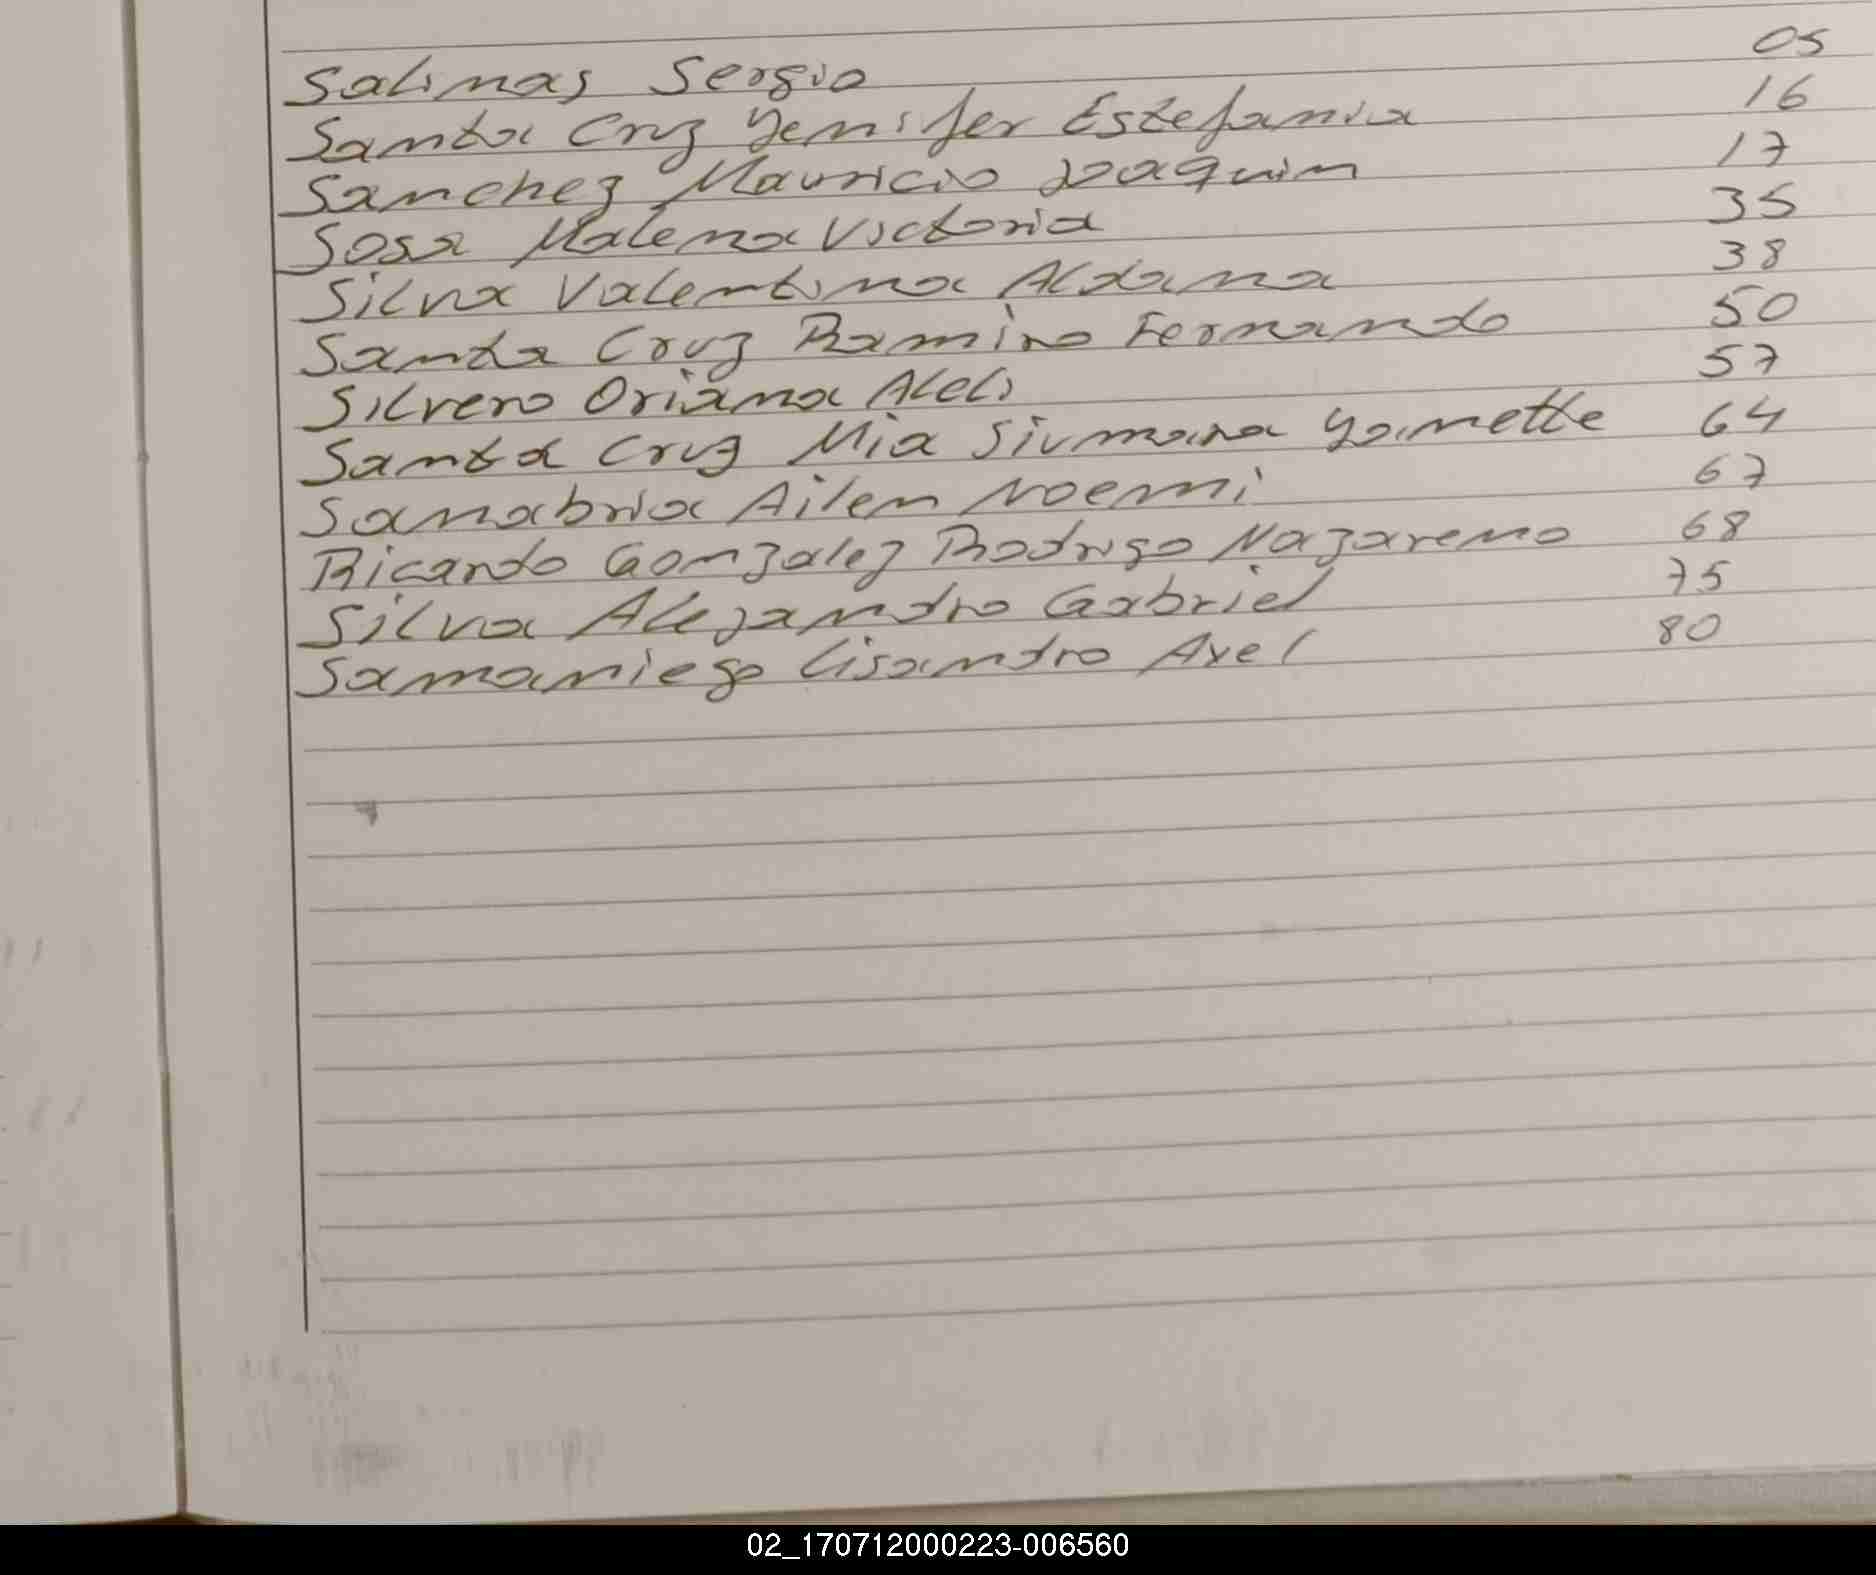 Salinas Sergio 05
Santa Cruz Yenifer Estefania 16
Sanchez Mauricio Joaquin 17
Sosa Malena Victoria 35
Silva Valentina Aldana 38
Santa Cruz Ramiro Fernando 50
Silvero Oriana Aleli 57
Santa Cruz Mia Siumara Yamette 64
Sanabria Ailen Noemi 67
Ricardo Gonzalez Rodrigo Nazareno 68
Silva Alejandro Gabriel 75
Samaniego Lisandro Axel 80
02_170712000223-006560